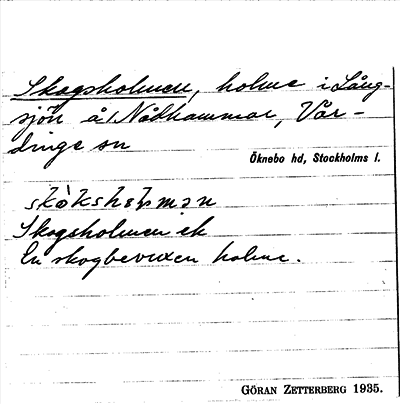 Skogsholmen, holme i Lång-
sjön å Nådhammar, Vår-
dinge sn
Öknebo hd, Stockholms l.
skòksholmən
Skogsholmen ek
En skogbevuxen holme.
GÖRAN ZETTERBERG 1935.